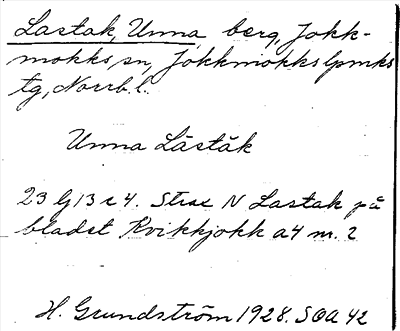 Lastak, Unna, berg, Jokk-
mokks, sn, Jokkmokks lpmks
tg, Norrb. l.
Unna Låståk
23 G 13 c 4. Strax N Lastak på
bladet Kvikkjokk a4 m. 2
H. Grundström 1928. SOA 42